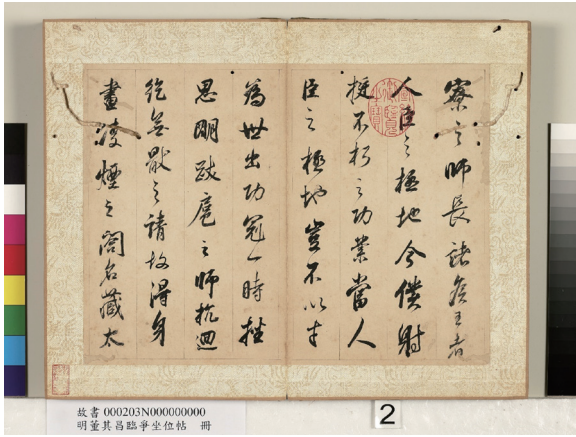 寮之師長諸侯王者
人臣之極地今僕射
挺不朽之功業當人
臣之極地豈不以才
為世出功冠一時挫
思明跋扈之師抗迴
紇無猒之請故得身
畫凌煙之閣名藏太
故書 000203N000000000
明董其昌臨爭坐位帖 冊
2